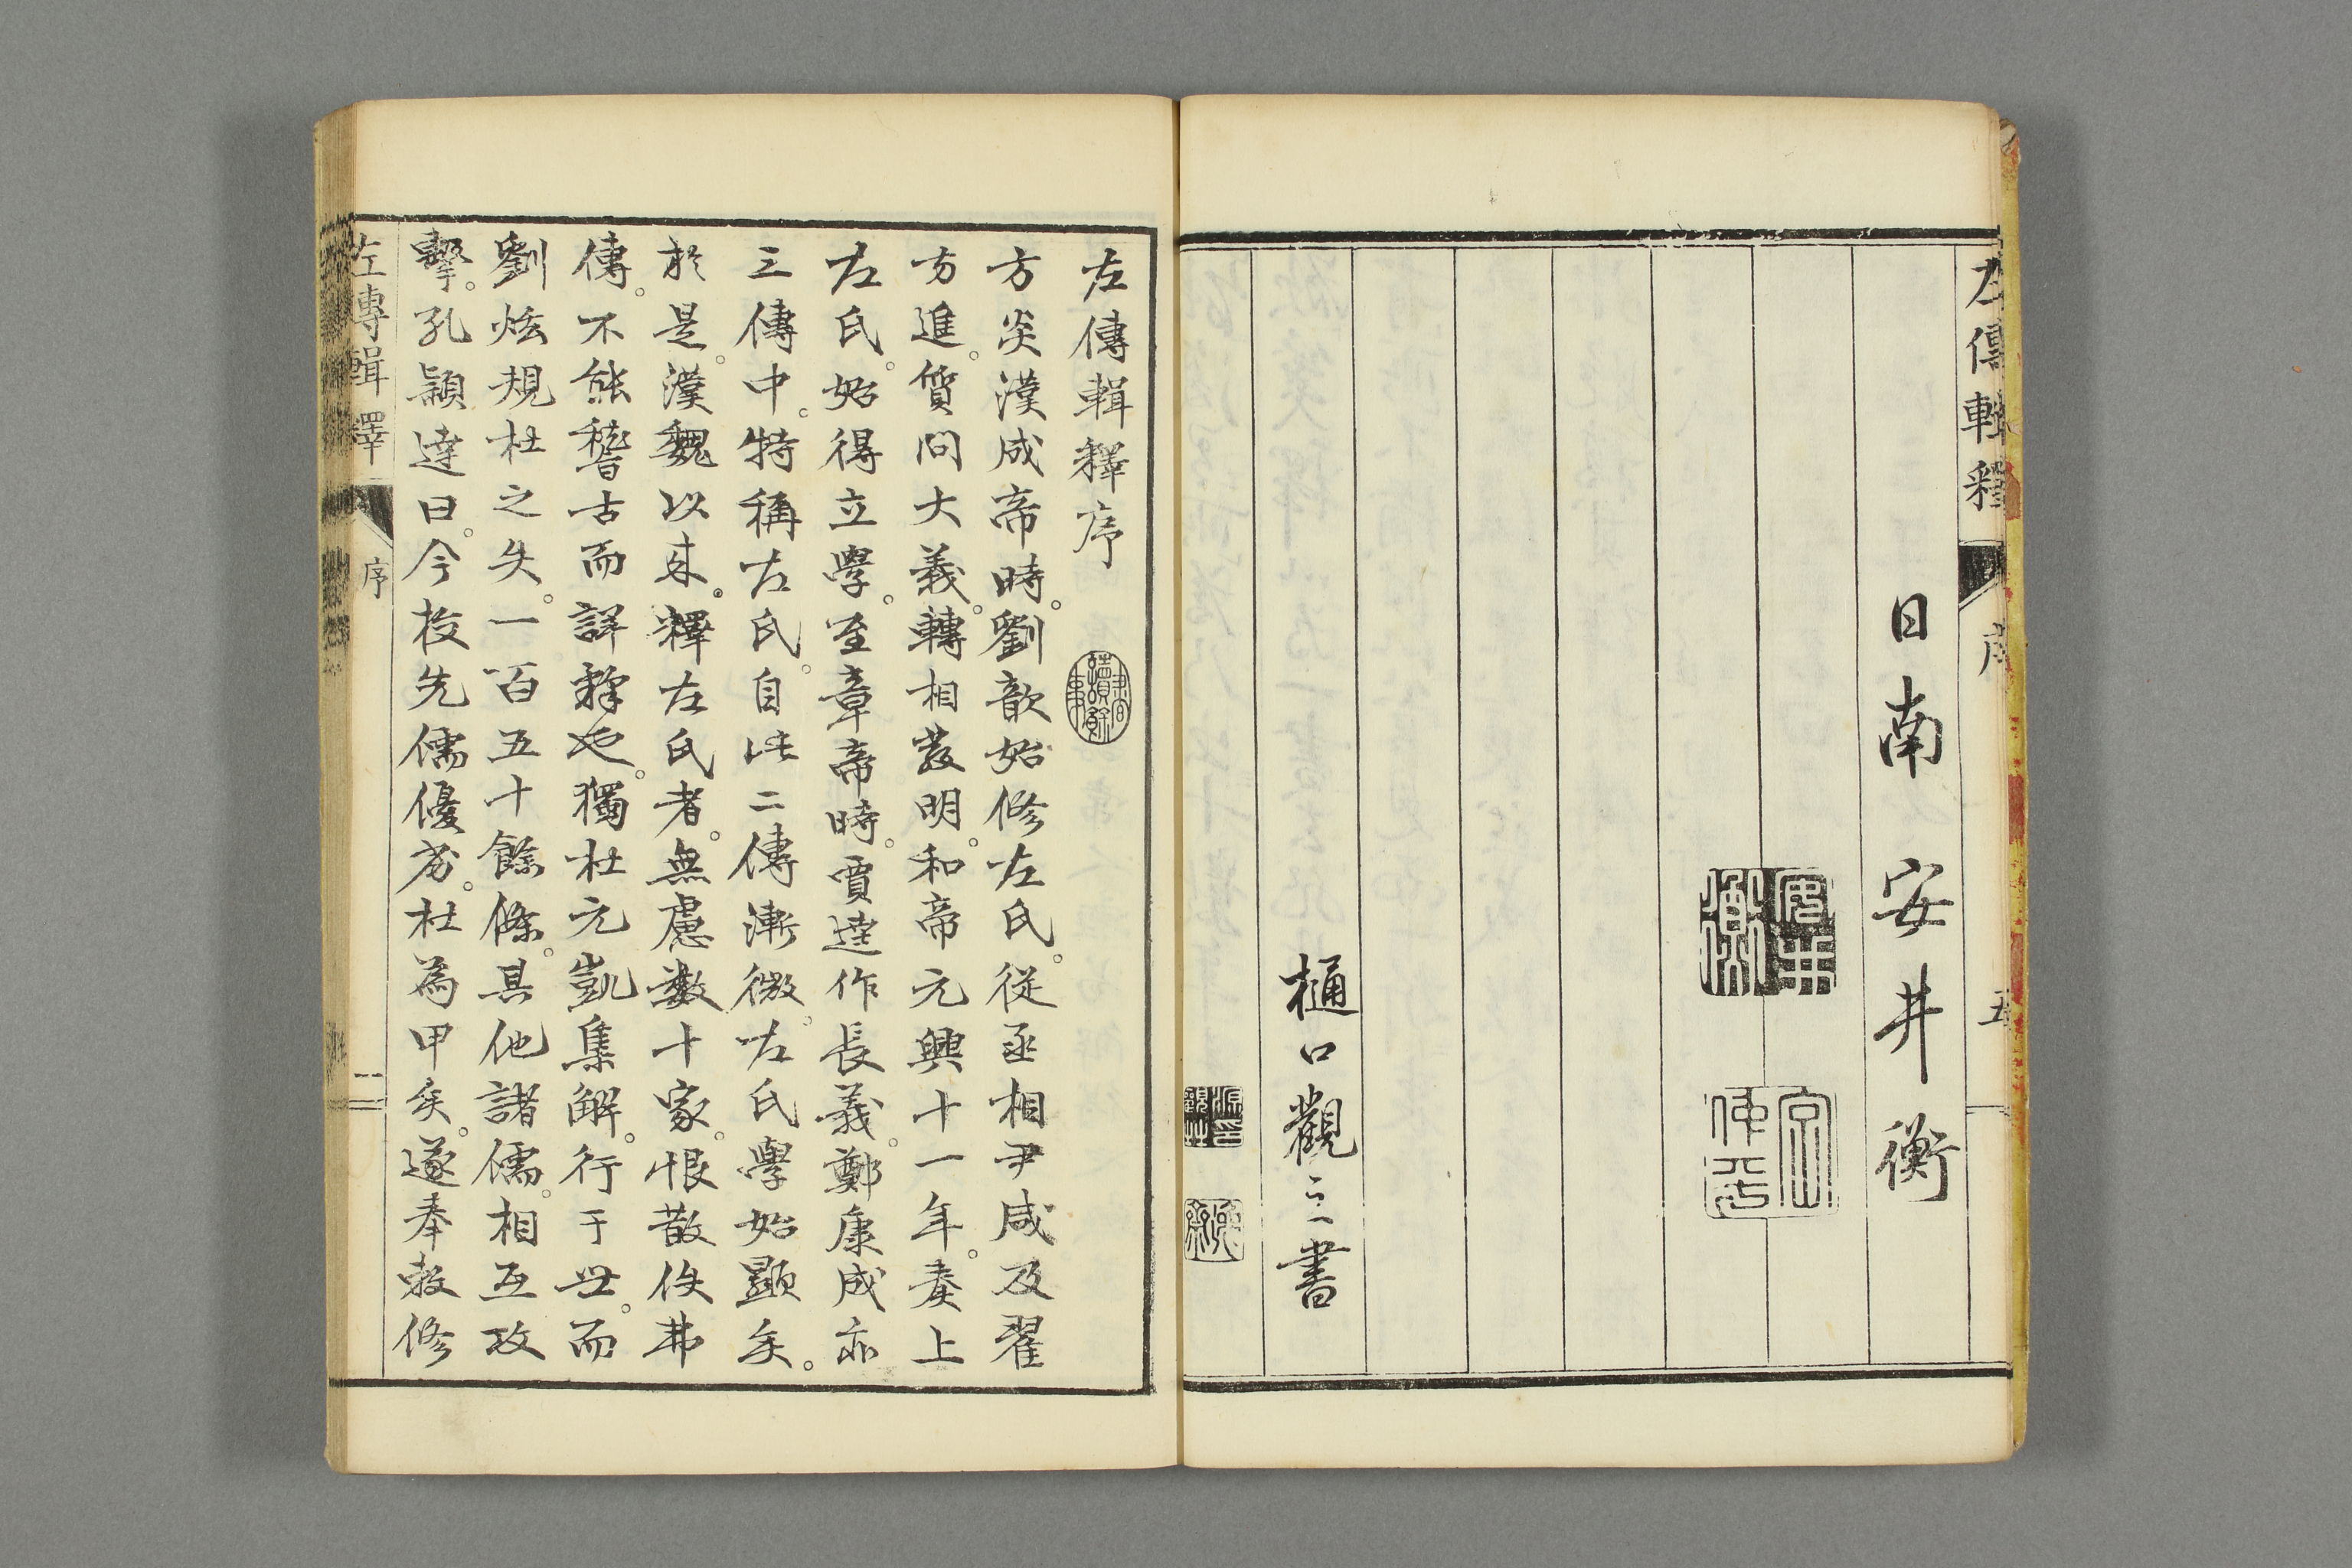 左傳輯釋
序
五
日南 安井衡
安井衡
仲平
樋口觀三書
左傳輯釋序
方炎漢成帝時。劉歆始修左氏。從丞相尹咸及翟
方進。質問大義。轉相發明。和帝元興十一年。奏上
左氏。始得立學。至章帝時。賈逵作長義。鄭康成亦
三傳中。特稱左氏。自此二傳漸微。左氏學始顯矣。
於是。漢魏以來。釋左氏者。無慮數十家。恨散佚弗
傳。不能稽古而詳釋也。獨杜元凱集解。行于世。而
劉炫規杜之失。一百五十餘條。其他諸儒。相互攻
擊。孔穎達曰。今挍先儒優劣。杜為甲矣。遂奉敕修
左傳輯釋
序
一